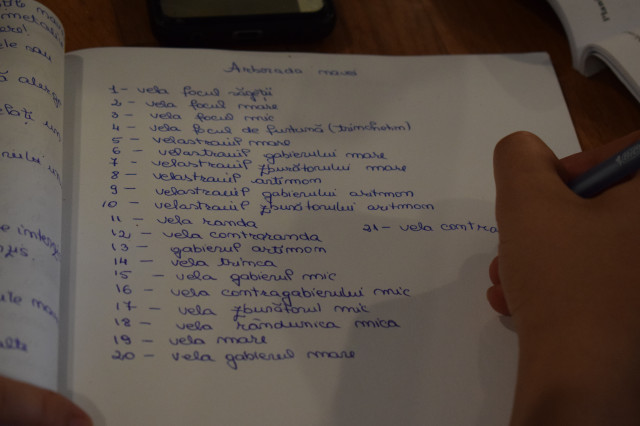 Arborada navei
1 - vela focul săgeții
2 - vela focul mare
3 - vela focul mic
4 - vela focul de furtună (trimchetim)
5 - velastraiul mare
6 - velastraiul gabierului mare
7 - velastraiul zburătorului mare
8 - velastraiul artimon
9 - velastraiul gabierului aritmon
10 - velastraiul zburătorului aritmon
11 - vela randa
12 - vela contraranda
13 - gabierul artimon
14 - vela trinca
15 - vela gabierul mic
16 - vela contragabierului mic
17 - vela zburătorul mic
18 - vela rândunica mica
19 - vela mare
20 - vela gabierul mare
21 - vela contra